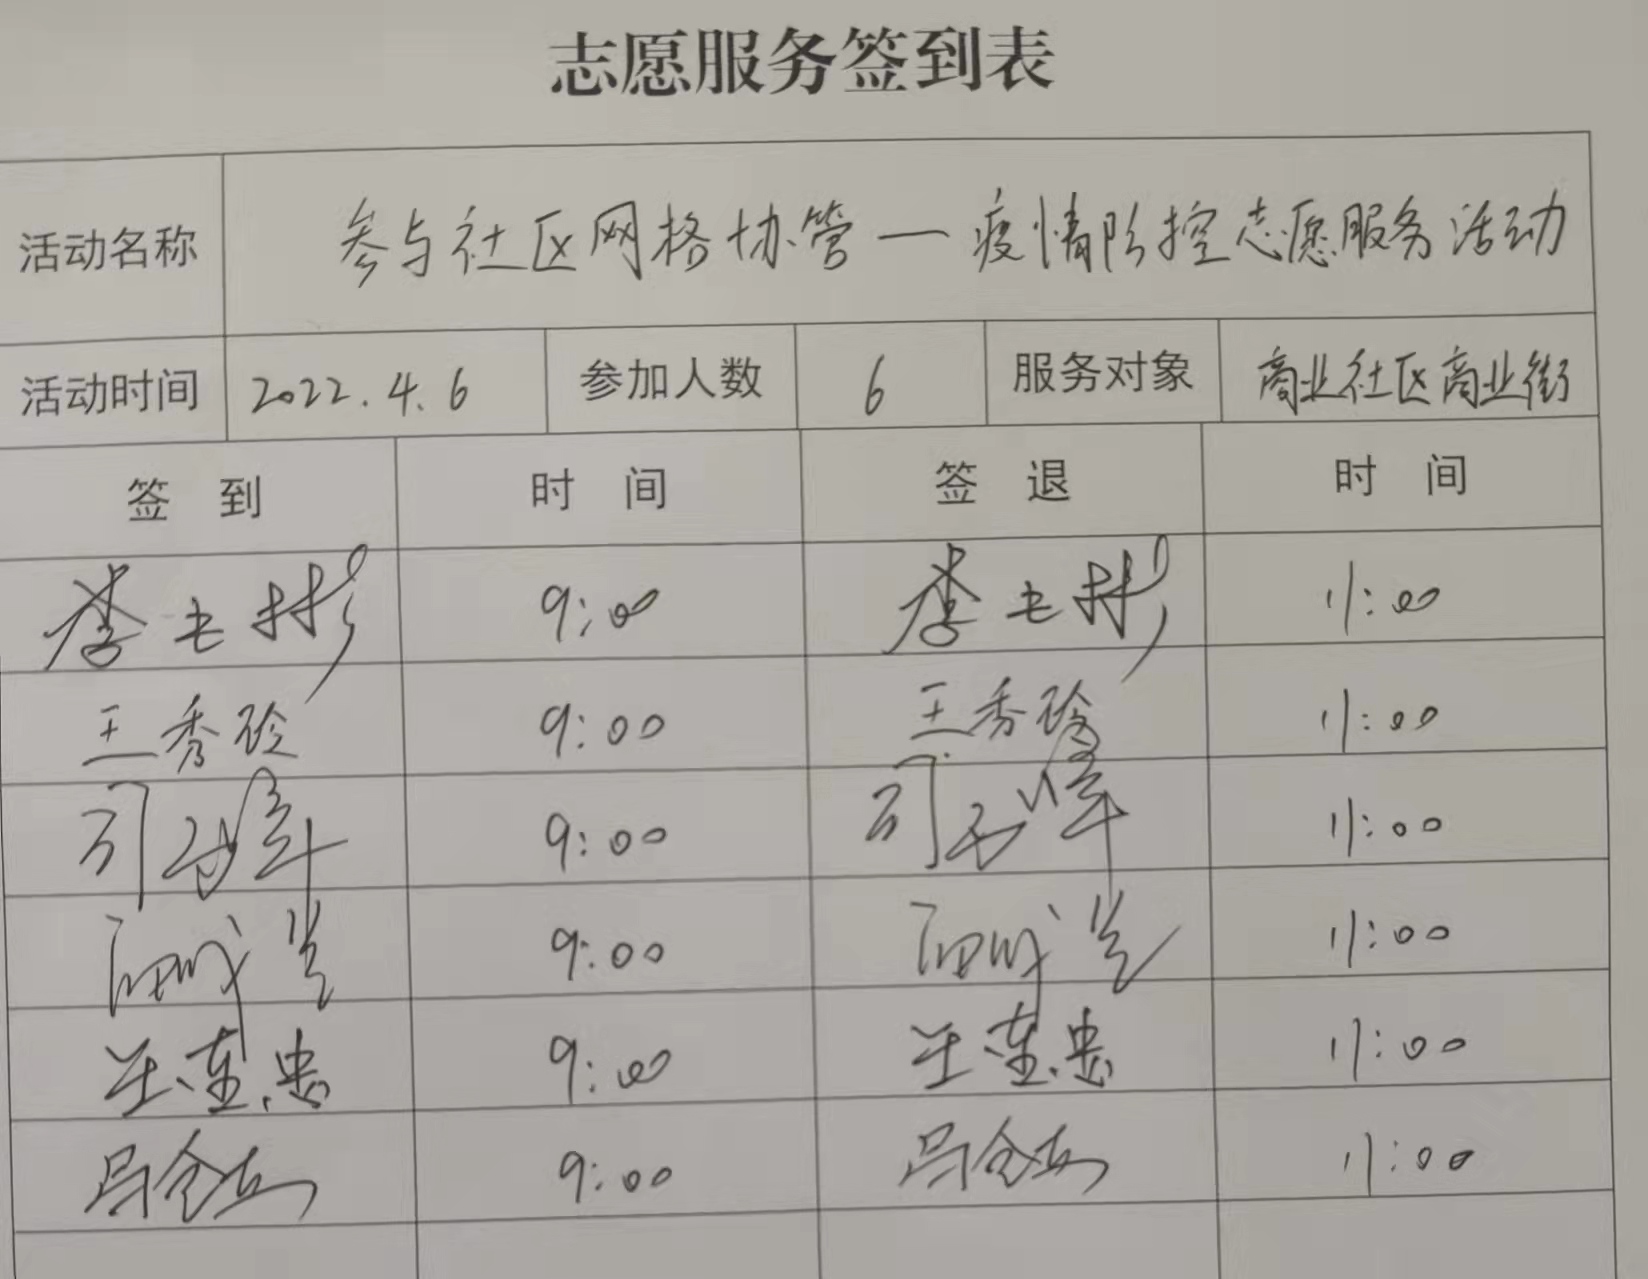 志愿服务签到表
活动名称 参与社区网格协管一疫情防控志愿服务活动
活动时间 2022.4.6 参加人数 6 服务对象 商业社区商业街
签 到 时 间 签 退 时 间
李 彬 9:00 李 彬 11:00
王秀玲 9:00 王秀玲 11:00
9:00 11:00
9:00 11:00
9:00 11:00
9:00 11:00